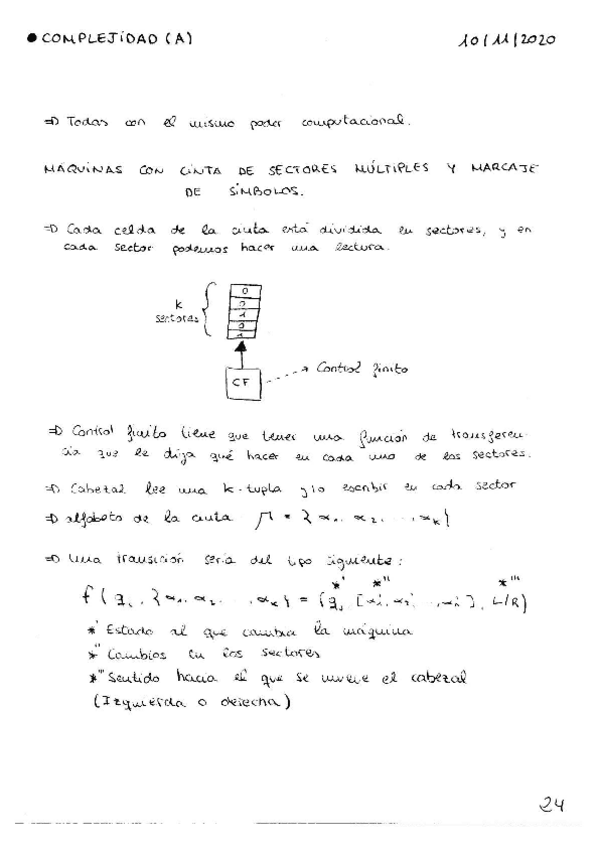 ● COMPLEJIDAD (A) 10/11/2020
⇒ Todas con el mismo poder computacional.
MÁQUINAS CON CINTA DE SECTORES MÚLTIPLES Y MARCAJE
DE SÍMBOLOS.
⇒ Cada celda de la cinta está dividida en sectores, y en
cada sector podemos hacer una lectura.
k
sectores
0
0
1
0
1
CF
Control finito
⇒ Control finito tiene que tener una función de transferen-
cia que le diga qué hacer en cada uno de los sectores.
⇒ Cabezal lee una k-tupla y/o escribir en cada sector
⇒ alfabeto de la cinta Γ = {α₁, α₂, ..., αₖ}
⇒ Una transición sería del tipo siguiente:
*' *'' *'''
f(qᵢ, {α₁, α₂, ..., αₖ}) = (qⱼ, [α₁', α₂', ..., αₖ'], L/R)
*' Estado al que cambia la máquina
*'' Cambios en los sectores
*''' Sentido hacia el que se mueve el cabezal
(Izquierda o derecha)
24